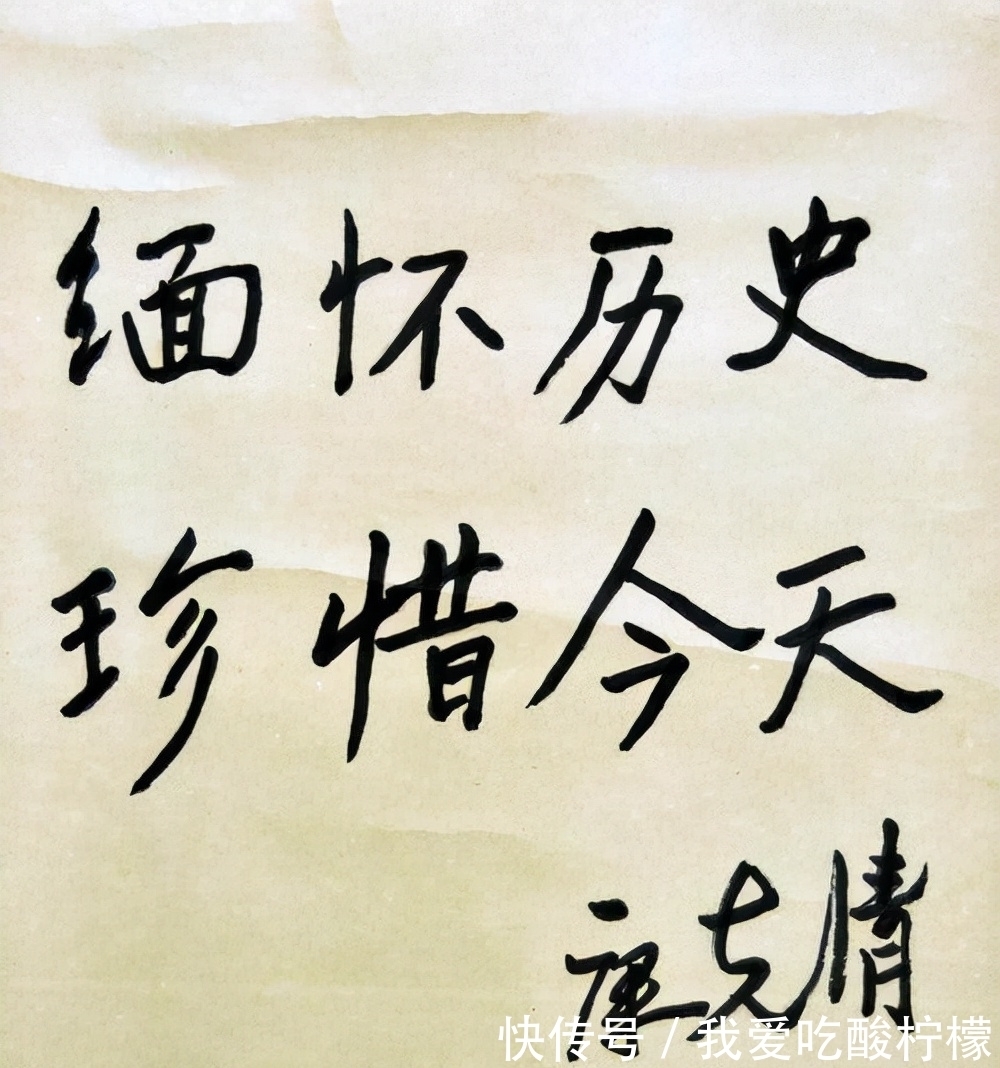 缅怀历史
珍惜今天
康克清
快传号 / 我爱吃酸柠檬